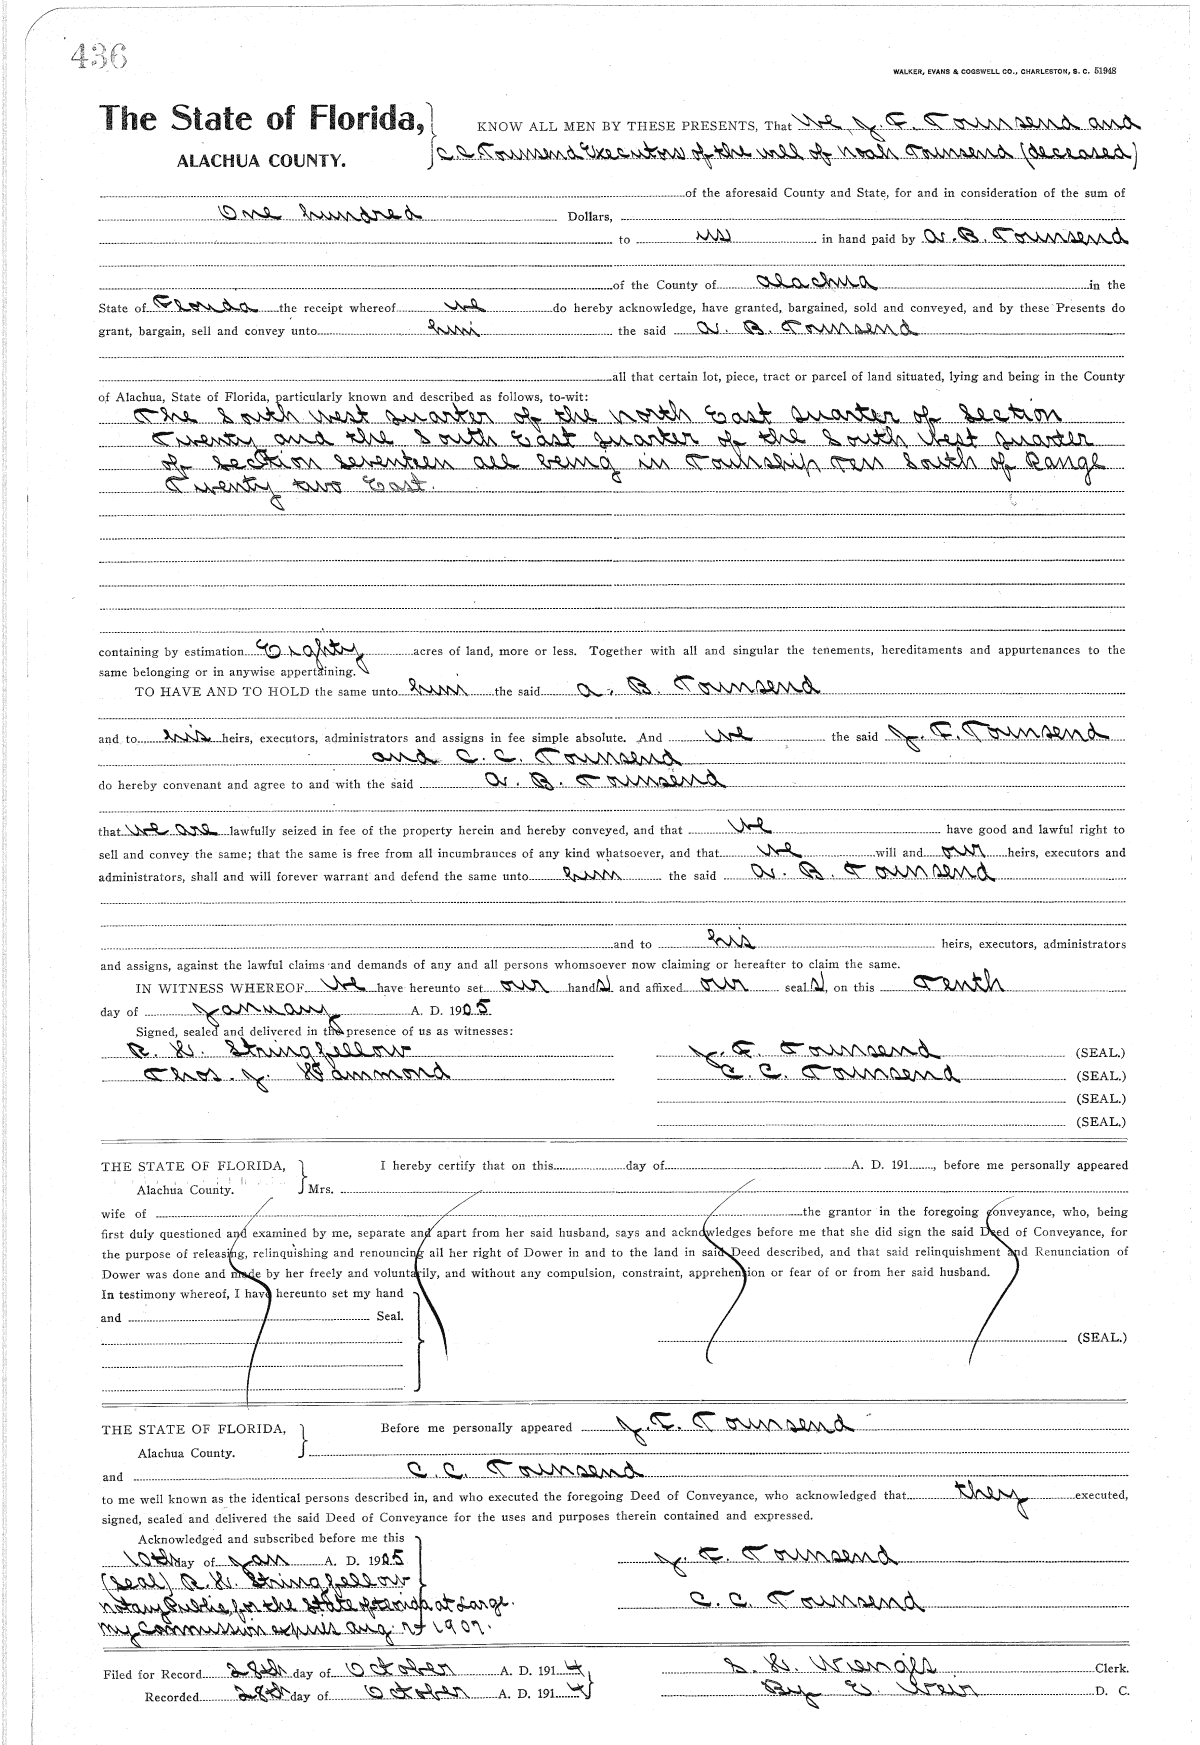 436
WALKER, EVANS & COGSWELL CO., CHARLESTON, S. C. 51948
The State of Florida,
ALACHUA COUNTY.
KNOW ALL MEN BY THESE PRESENTS, That We, J. F. Townsend and
C C Townsend Executors of the will of Noah Townsend (deceased)
of the aforesaid County and State, for and in consideration of the sum of
One hundred Dollars,
to us in hand paid by A. B. Townsend
of the County of Alachua in the
State of Florida the receipt whereof we do hereby acknowledge, have granted, bargained, sold and conveyed, and by these Presents do
grant, bargain, sell and convey unto him the said A. B. Townsend
all that certain lot, piece, tract or parcel of land situated, lying and being in the County
of Alachua, State of Florida, particularly known and described as follows, to-wit:
The South West quarter of the North East quarter of Section
Twenty and the South East quarter of the South West quarter
of Section Seventeen all being in Township Ten South of Range
Twenty two East.
containing by estimation Eighty acres of land, more or less. Together with all and singular the tenements, hereditaments and appurtenances to the
same belonging or in anywise appertaining.
TO HAVE AND TO HOLD the same unto him the said A. B. Townsend
and to his heirs, executors, administrators and assigns in fee simple absolute. And we the said J. F. Townsend
and C. C. Townsend
do hereby convenant and agree to and with the said A. B. Townsend
that we are lawfully seized in fee of the property herein and hereby conveyed, and that we have good and lawful right to
sell and convey the same; that the same is free from all incumbrances of any kind whatsoever, and that we will and our heirs, executors and
administrators, shall and will forever warrant and defend the same unto him the said A. B. Townsend
and to his heirs, executors, administrators
and assigns, against the lawful claims and demands of any and all persons whomsoever now claiming or hereafter to claim the same.
IN WITNESS WHEREOF We have hereunto set our hands and affixed our seals, on this Tenth
day of January A. D. 1905.
Signed, sealed and delivered in the presence of us as witnesses:
R. W. Stringfellow J. F. Townsend (SEAL.)
Thos. J. Hammond C. C. Townsend (SEAL.)
(SEAL.)
(SEAL.)
THE STATE OF FLORIDA, I hereby certify that on this day of A. D. 191 , before me personally appeared
Alachua County. Mrs.
wife of the grantor in the foregoing conveyance, who, being
first duly questioned and examined by me, separate and apart from her said husband, says and acknowledges before me that she did sign the said Deed of Conveyance, for
the purpose of releasing, relinquishing and renouncing all her right of Dower in and to the land in said Deed described, and that said relinquishment and Renunciation of
Dower was done and made by her freely and voluntarily, and without any compulsion, constraint, apprehension or fear of or from her said husband.
In testimony whereof, I have hereunto set my hand
and Seal.
(SEAL.)
THE STATE OF FLORIDA, Before me personally appeared J. F. Townsend
Alachua County.
and C. C. Townsend
to me well known as the identical persons described in, and who executed the foregoing Deed of Conveyance, who acknowledged that they executed,
signed, sealed and delivered the said Deed of Conveyance for the uses and purposes therein contained and expressed.
Acknowledged and subscribed before me this
10th day of Jan A. D. 1905 J. F. Townsend
(Seal) R. W. Stringfellow
Notary Public for the State of Florida at Large. C. C. Townsend
My Commission expires Aug 1907.
Filed for Record 28th day of October A. D. 1914 Clerk.
Recorded 28th day of October A. D. 1914 By E. Weir D. C.